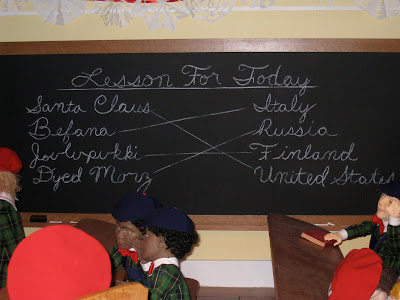 Lesson For Today
Santa Claus Italy
Befana Russia
Joulupukki Finland
Dyed Moroz United States